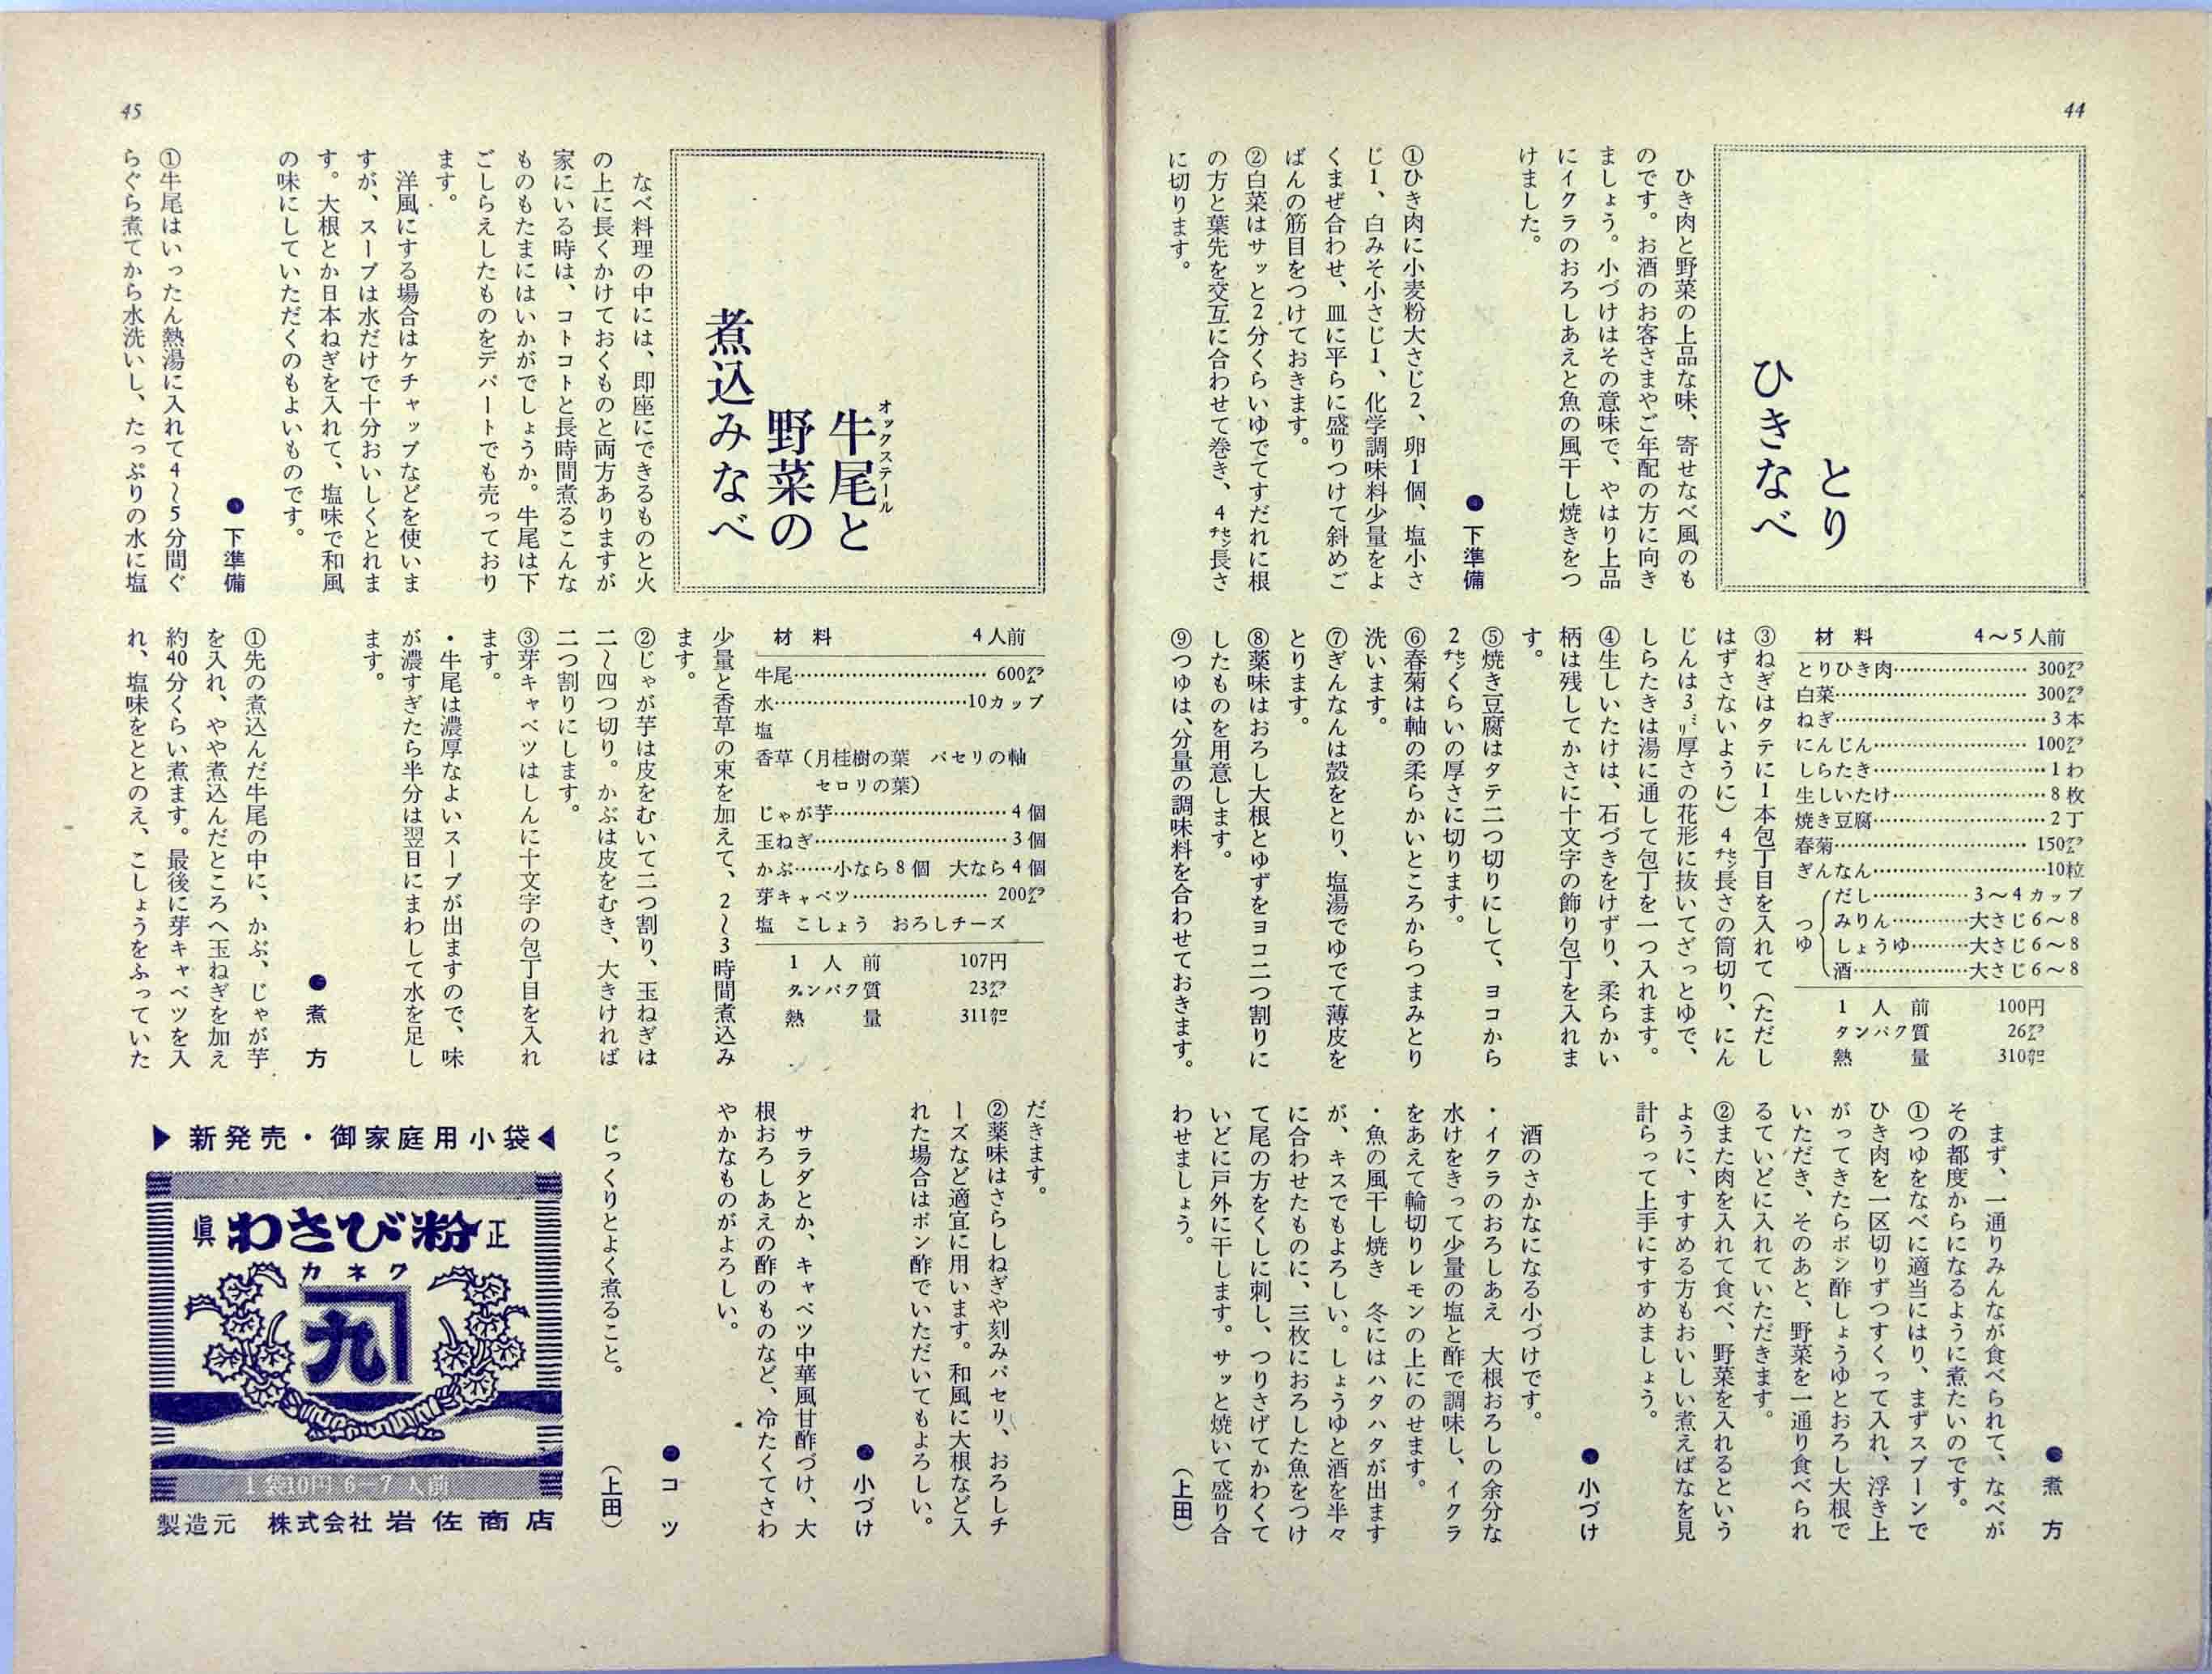 44
とり
ひきなべ
ひき肉と野菜の上品な味、寄せなべ風のも
のです。お酒のお客さまやご年配の方に向き
ましょう。小づけはその意味で、やはり上品
にイクラのおろしあえと魚の風干し焼きをつ
けました。
●下準備
①ひき肉に小麦粉大さじ2、卵1個、塩小さ
じ1、白みそ小さじ1、化学調味料少量をよ
くまぜ合わせ、皿に平らに盛りつけて斜めご
ばんの筋目をつけておきます。
②白菜はサッと2分くらいゆでてすだれに根
の方と葉先を交互に合わせて巻き、4㌢長さ
に切ります。
材料 4〜5人前
とりひき肉…………………300㌘
白菜…………………300㌘
ねぎ…………………3本
にんじん…………………100㌘
しらたき…………………1わ
生しいたけ…………………8枚
焼き豆腐…………………2丁
春菊…………………150㌘
ぎんなん…………………10粒
つゆ
だし……………3〜4カップ
みりん…………大さじ6〜8
しょうゆ………大さじ6〜8
酒………………大さじ6〜8
1人前 100円
タンパク質 26㌘
熱量 310㌍
③ねぎはタテに1本包丁目を入れて（ただし
はずさないように）4㌢長さの筒切り、にん
じんは3㍉厚さの花形に抜いてざっとゆで、
しらたきは湯に通して包丁を一つ入れます。
④生しいたけは、石づきをけずり、柔らかい
柄は残してかさに十文字の飾り包丁を入れま
す。
⑤焼き豆腐はタテ二つ切りにして、ヨコから
2㌢くらいの厚さに切ります。
⑥春菊は軸の柔らかいところからつまみとり
洗います。
⑦ぎんなんは殻をとり、塩湯でゆでて薄皮を
とります。
⑧薬味はおろし大根とゆずをヨコ二つ割りに
したものを用意します。
⑨つゆは、分量の調味料を合わせておきます。
●煮方
まず、一通りみんなが食べられて、なべが
その都度からになるように煮たいのです。
①つゆをなべに適当にはり、まずスプーンで
ひき肉を一区切りずつすくって入れ、浮き上
がってきたらポン酢しょうゆとおろし大根で
いただき、そのあと、野菜を一通り食べられ
るていどに入れていただきます。
②また肉を入れて食べ、野菜を入れるという
ように、すすめる方もおいしい煮えばなを見
計らって上手にすすめましょう。
●小づけ
酒のさかなになる小づけです。
・イクラのおろしあえ　大根おろしの余分な
水けをきって少量の塩と酢で調味し、イクラ
をあえて輪切りレモンの上にのせます。
・魚の風干し焼き　冬にはハタハタが出ます
が、キスでもよろしい。しょうゆと酒を半々
に合わせたものに、三枚におろした魚をつけ
て尾の方をくしに刺し、つりさげてかわくて
いどに戸外に干します。サッと焼いて盛り合
わせましょう。
（上田）
45
牛尾と
オックステール
野菜の
煮込みなべ
なべ料理の中には、即座にできるものと火
の上に長くかけておくものと両方ありますが
家にいる時は、コトコトと長時間煮るこんな
ものもたまにはいかがでしょうか。牛尾は下
ごしらえしたものをデパートでも売っており
ます。
洋風にする場合はケチャップなどを使いま
すが、スープは水だけで十分おいしくとれま
す。大根とか日本ねぎを入れて、塩味で和風
の味にしていただくのもよいものです。
●下準備
①牛尾はいったん熱湯に入れて4〜5分間ぐ
らぐら煮てから水洗いし、たっぷりの水に塩
材料 4人前
牛尾…………………600㌘
水…………………10カップ
塩
香草（月桂樹の葉　パセリの軸
セロリの葉）
じゃが芋…………………4個
玉ねぎ…………………3個
かぶ……小なら8個　大なら4個
芽キャベツ…………………200㌘
塩　こしょう　おろしチーズ
1人前 107円
タンパク質 23㌘
熱量 311㌍
少量と香草の束を加えて、2〜3時間煮込み
ます。
②じゃが芋は皮をむいて二つ割り、玉ねぎは
二〜四つ切り。かぶは皮をむき、大きければ
二つ割りにします。
③芽キャベツはしんに十文字の包丁目を入れ
ます。
・牛尾は濃厚なよいスープが出ますので、味
が濃すぎたら半分は翌日にまわして水を足し
ます。
●煮方
①先の煮込んだ牛尾の中に、かぶ、じゃが芋
を入れ、やや煮込んだところへ玉ねぎを加え
約40分くらい煮ます。最後に芽キャベツを入
れ、塩味をととのえ、こしょうをふっていた
だきます。
②薬味はさらしねぎや刻みパセリ、おろしチ
ーズなど適宜に用います。和風に大根など入
れた場合はポン酢でいただいてもよろしい。
●小づけ
サラダとか、キャベツ中華風甘酢づけ、大
根おろしあえの酢のものなど、冷たくてさわ
やかなものがよろしい。
●コツ
じっくりとよく煮ること。
（上田）
▶新発売・御家庭用小袋◀
眞 わさび粉 正
カネク
九
1袋10円 6−7人前
製造元　株式会社 岩佐商店